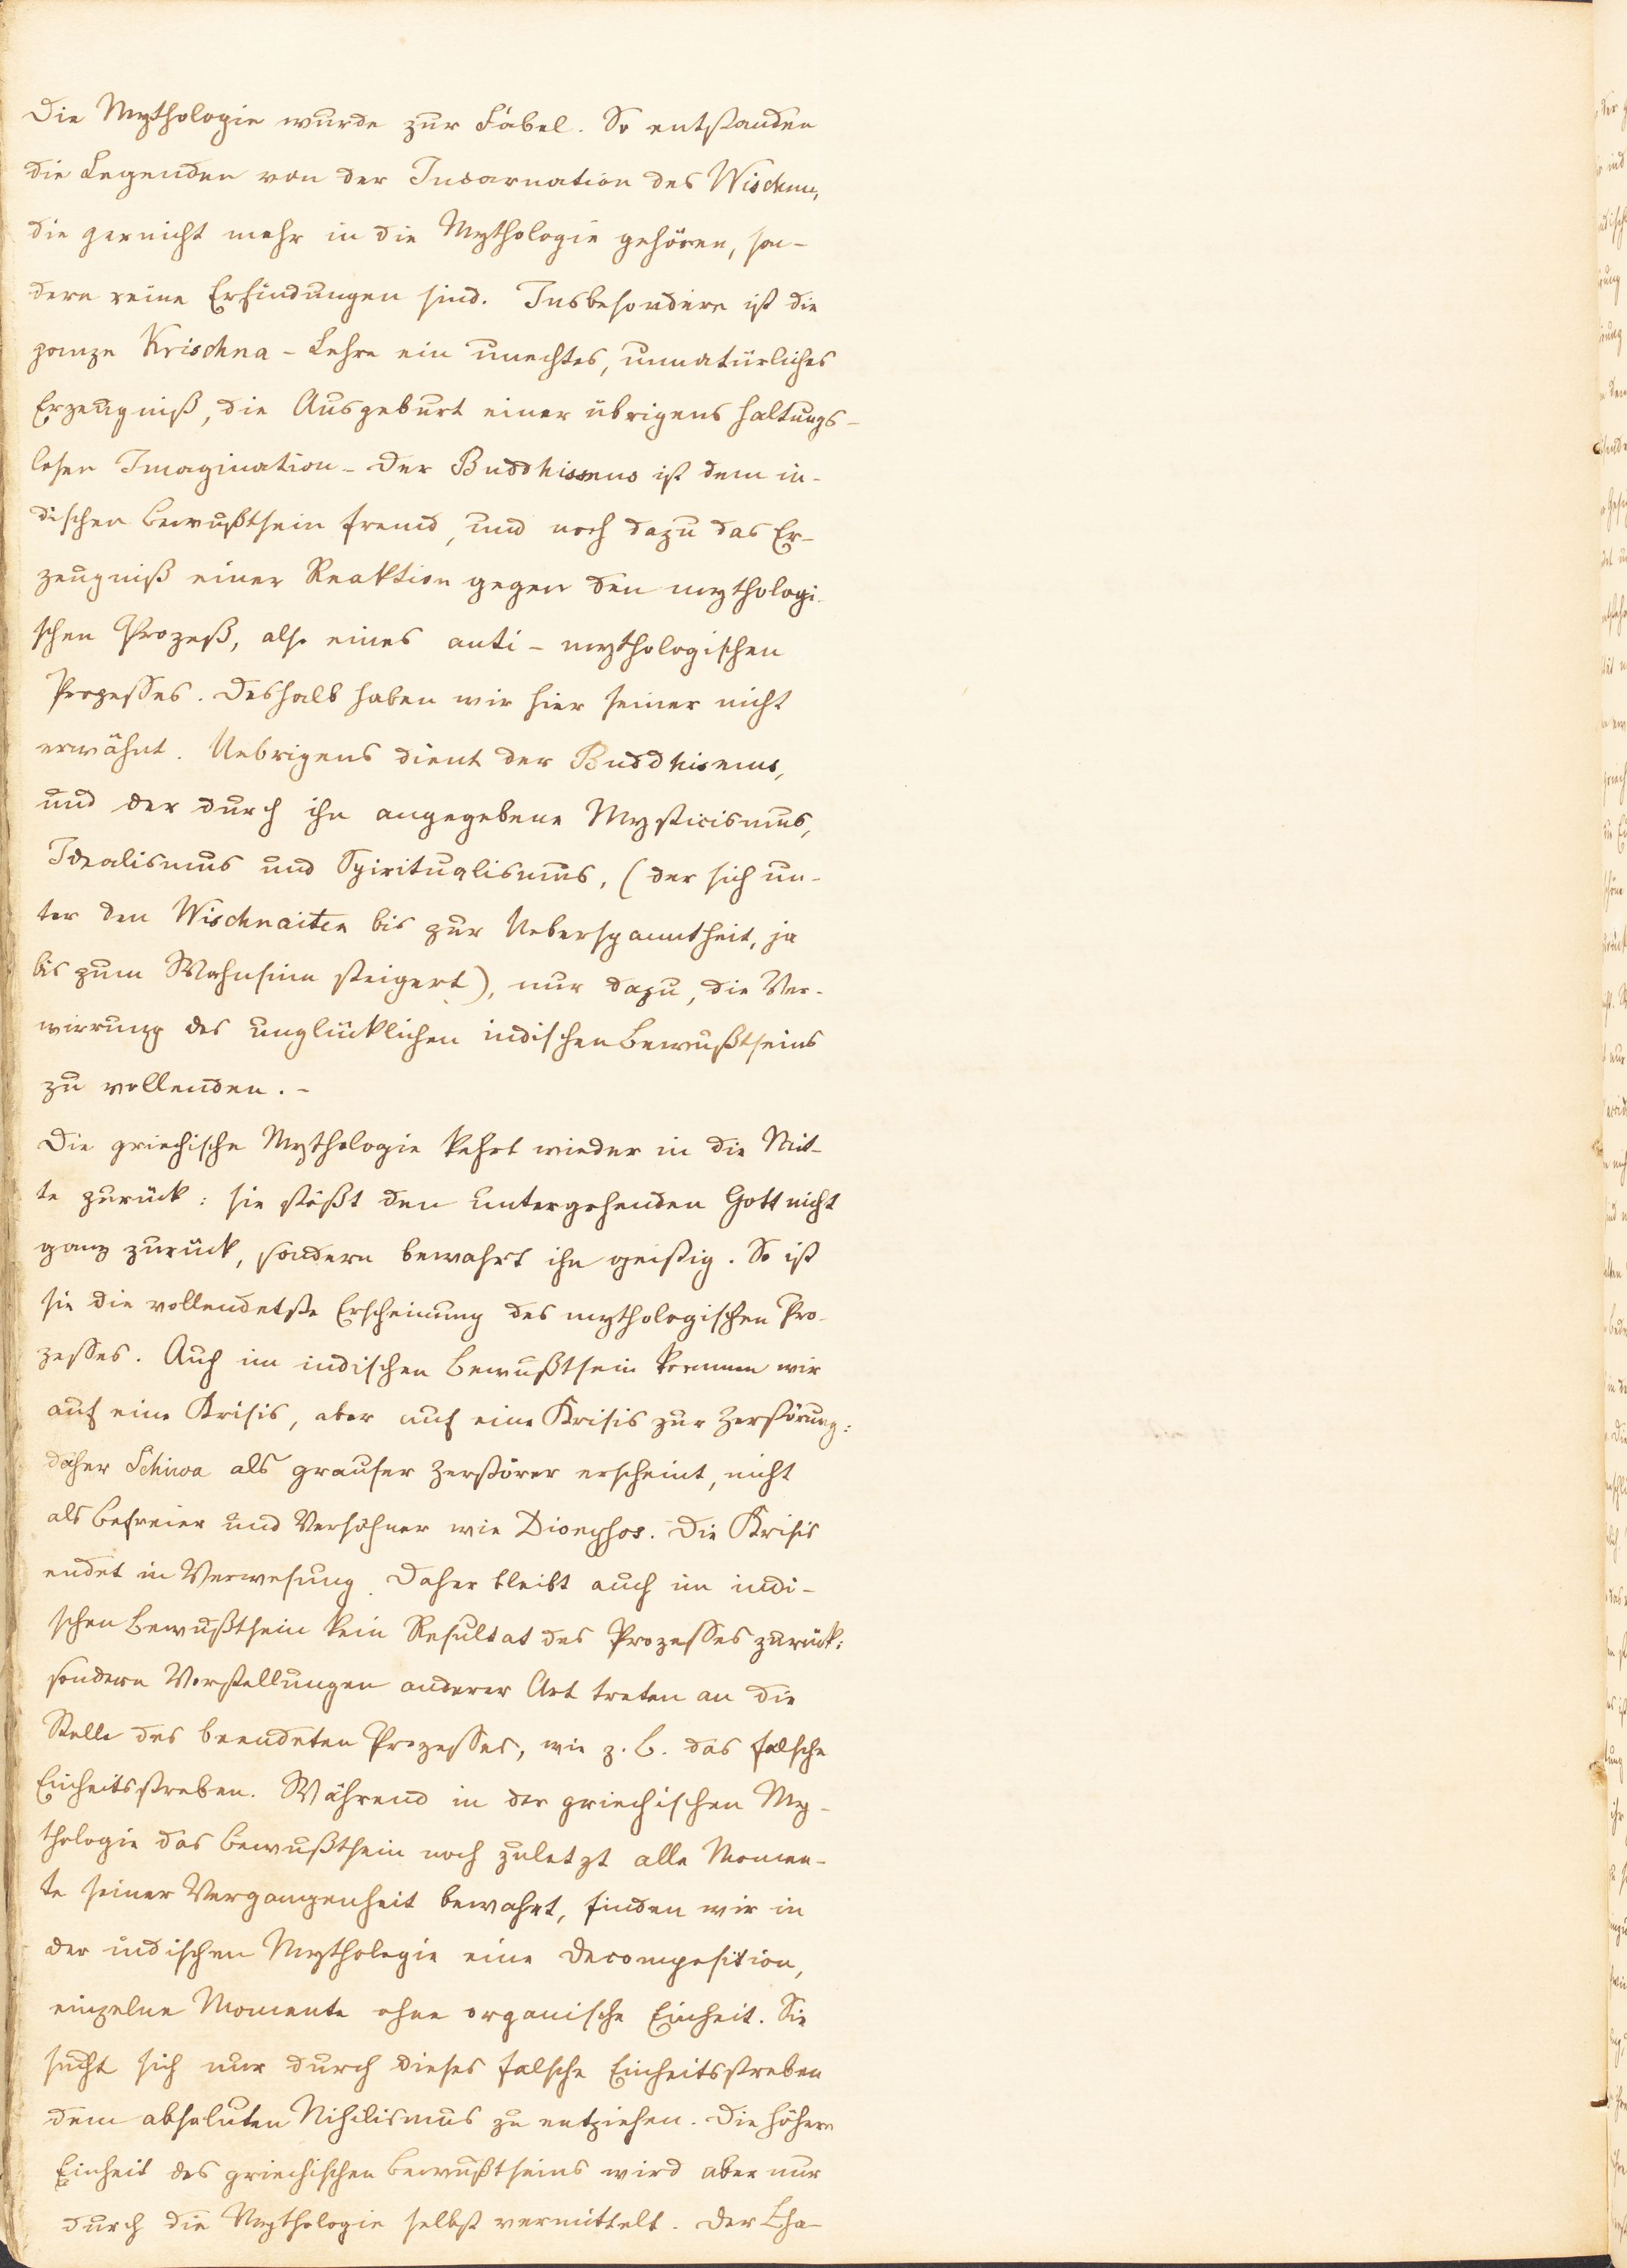 Die Mythologie wurde zur Fabel. So entstanden
die Legenden von der Incarnation des Wischnu,
die garnicht mehr in die Mythologie gehören, son-
dern reine Erfindungen sind. Insbesondere ist die
ganze Krischna-Lehre ein unechtes, unnatürliches
Erzeugniß, die Ausgeburt einer übrigens haltungs-
losen Imagination - Der Buddhismus ist dem in-
dischen Bewußtsein fremd, und noch dazu das Er-
zeugniß einer Reaktion gegen den mythologi-
schen Prozeß, also eines anti-mythologischen
Prozesses. Deshalb haben wir hier seiner nicht
erwähnt. Uebrigens dient der Buddhismus,
und der durch ihn angegebene Mysticismus,
Idealismus und Spiritualismus, (der sich un-
ter den Wischnaiten bis zur Ueberspanntheit, ja
bis zum Wahnsinn steigert), nur dazu, die Ver-
wirrung des unglücklichen indischen Bewußtseins
zu vollenden. -
Die griechische Mythologie kehrt wieder in die Mit-
te zurück: sie stößt den untergehenden Gott nicht
ganz zurück, sondern bewahrt ihn geistig. So ist
sie die vollendetste Erscheinung des mythologischen Pro-
zesses. Auch im indischen Bewußtsein kommen wir
auf eine Krisis, aber auf eine Krisis zur Zerstörung:
daher Schiwa als grauser Zerstörer erscheint, nicht
als Befreier und Versöhner wie Dionysos. Die Krisis
endet in Verwesung. Daher bleibt auch im indi-
schen Bewußtsein kein Resultat des Prozesses zurück:
sondern Vorstellungen anderer Art treten an die
Stelle des beendeten Prozesses, wie z. B. das falsche
Einheitsstreben. Während in der griechischen My-
thologie das Bewußtsein noch zuletzt alle Momen-
te seiner Vergangenheit bewahrt, finden wir in
der indischen Mythologie eine Decomposition,
einzelne Momente ohne organische Einheit. Sie
sucht sich nur durch dieses falsche Einheitsstreben
dem absoluten Nihilismus zu entziehen. Die höhere
Einheit des griechischen Bewußtseins wird aber nur
durch die Mythologie selbst vermittelt. Der Cha-